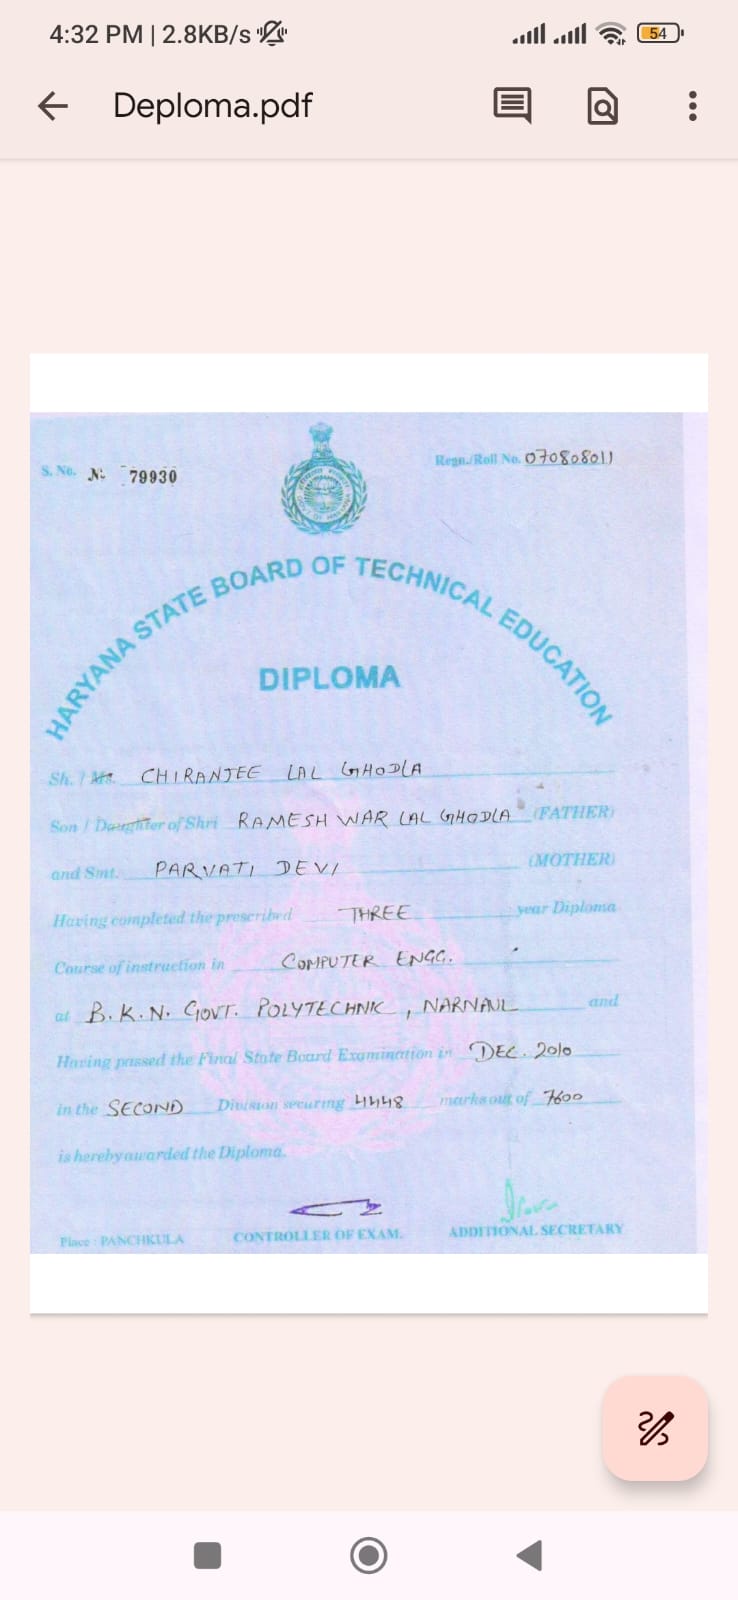 4:32 PM | 2.8KB/s
54
Deploma.pdf
S. No. Nº 79930
Regn./Roll No. 070808011
HARYANA STATE BOARD OF TECHNICAL EDUCATION
DIPLOMA
Sh. / Ms. CHIRANJEE LAL GHODLA
Son / Daughter of Shri RAMESH WAR LAL GHODLA (FATHER)
and Smt. PARVATI DEVI (MOTHER)
Having completed the prescribed THREE year Diploma
Course of instruction in COMPUTER ENGG.
at B.K.N. GOVT. POLYTECHNIC, NARNAUL and
Having passed the Final State Board Examination in DEC. 2010
in the SECOND Division securing 4448 marks out of 7600
is hereby awarded the Diploma.
Place : PANCHKULA CONTROLLER OF EXAM. ADDITIONAL SECRETARY